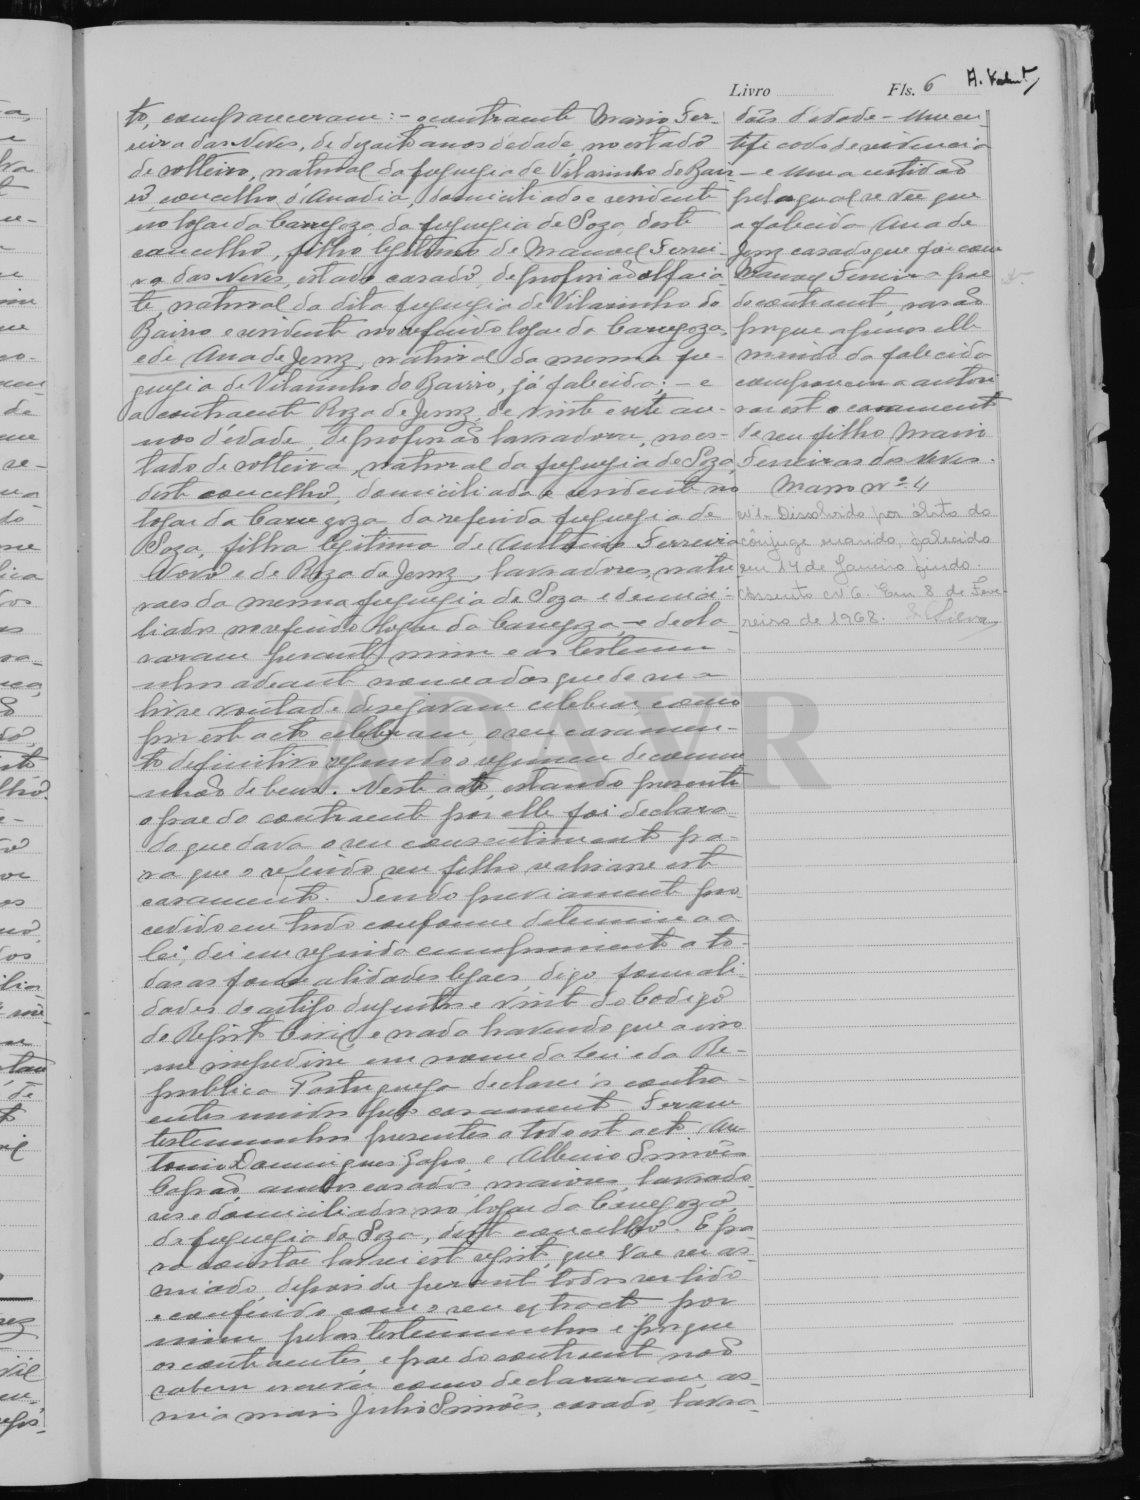 Livro Fls. 6
to, compareceram: - o contraente Mario Fer-
reira das Neves, de dezoito anos d'edade, no estado
de solteiro, natural da freguezia de Vilarinho do Bair-
ro, concelho d'Anadia, domiciliado e residente
no logar da Carregoza, da freguezia de Soza, deste
concelho, filho legitimo de Manoel Ferrei-
ra das Neves, estado casado, de profissão alfaia-
te, natural da dita freguezia de Vilarinho do
Bairro e residente no referido logar da Carregoza,
e de Ana de Jesuz, natural da mesma fre-
guezia de Vilarinho do Bairro, já falecida; - e
a contraente Roza de Jesuz, de vinte e sete an-
nos d'edade, de profissão lavradora, no es-
tado de solteira, natural da freguezia de Soza,
deste concelho, domiciliada e residente no
logar da Carregoza da referida freguezia de
Soza, filha legitima de Antonio Ferreira
Novo e de Roza de Jesuz, lavradores, natu-
raes da mesma freguezia de Soza e domici-
liados no referido logar da Carregoza, - e decla-
raram perante mim e as testemu-
nhas adeante nomeadas que de sua
livre vontade desejavam celebrar como
por este acto celebram, o seu casamen-
to definitivo segundo o regimen de comu-
nhão de bens. Neste acto, estando presente
o pae do contraente por elle foi declara-
do que dava o seu consentimento pa-
ra que o referido seu filho realisasse este
casamento. Sendo previamente pro-
cedido em tudo conforme determina a
lei, dei em seguida cumprimento a to-
das as formalidades legaes, digo, formali-
dades do artigo duzentos e vinte do Codigo
do Registo Civil, e nada havendo que a isso
me impedisse em nome da Lei e da Re-
publica Portugueza declarei os contra-
entes unidos pelo casamento. Foram
testemunhas presentes a todo este acto: An-
tonio Domingues e Albino Simões
ambos casados, maiores, lavrado-
res e domiciliados no logar da Carregoza,
da freguezia de Soza, deste concelho. E pa-
ra constar lavrei este registo, que vae ser as-
sinado, depois de perante todos ser lido
e conferido com o seu extracto por
mim, pelas testemunhas e porque
os contraentes, e pae do contraente não
sabem escrever como declararam, as-
sina mais Julio Simões, casado, lavra-
dois d'edade - Um cer-
tificado de residencia
- e uma certidão
pela qual se vê que
a falecida Ana de
Jesuz casada que foi com
Manoel Ferreira pae
do contraente, razão
porque apenas elle
marido da falecida
compareceu a autori-
sar este o casamento
de seu filho Mario
Ferreira das Neves.
Masso nº 4
Nº1 - Dissolvido por óbito do
cônjuge marido, falecido
em 14 de Janeiro findo.
Assento Nº 6. Em 8 de Feve-
reiro de 1968.
ADAVR